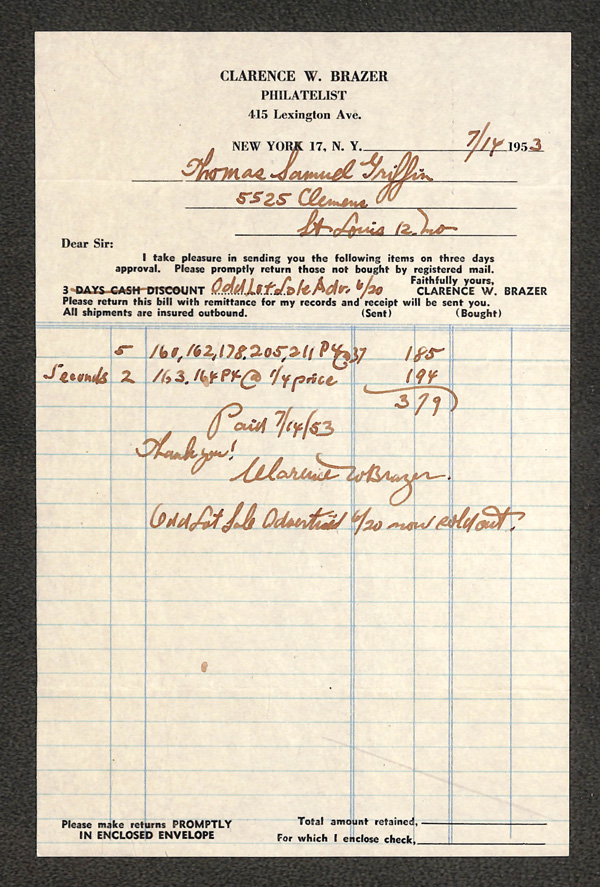 CLARENCE W. BRAZER
PHILATELIST
415 Lexington Ave.
NEW YORK 17, N. Y. 7/14 1953
Thomas Samuel Griffin
5525 Clemens
St Louis 12. Mo
Dear Sir:
I take pleasure in sending you the following items on three days
approval. Please promptly return those not bought by registered mail.
Faithfully yours,
3 DAYS CASH DISCOUNT Odd Lot Sale Adv. 6/20 CLARENCE W. BRAZER
Please return this bill with remittance for my records and receipt will be sent you.
All shipments are insured outbound. (Sent) (Bought)
5 160, 162, 178, 205, 211 P4 @ 37 185
Seconds 2 163. 164 P4 @ 1/4 price 194
379
Paid 7/14/53
Thank you!
Clarence W Brazer.
Odd Lot Sale Advertised 6/20 now sold out.
Please make returns PROMPTLY
IN ENCLOSED ENVELOPE
Total amount retained,
For which I enclose check,